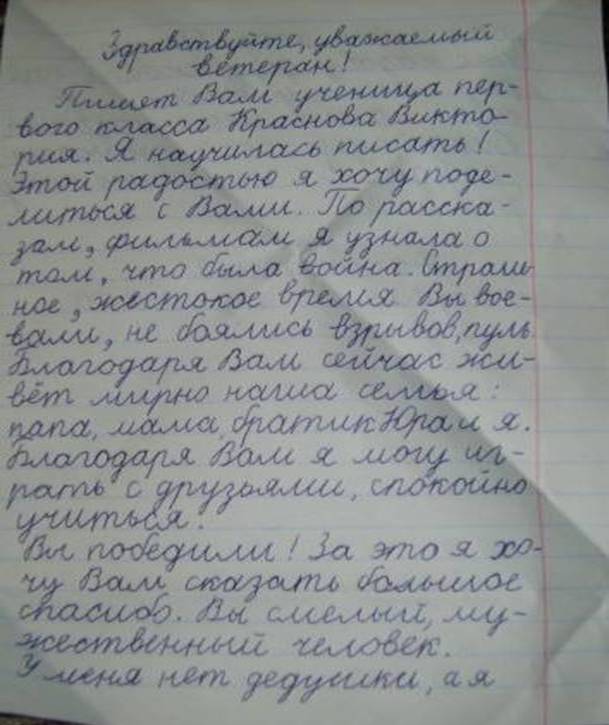 Здравствуйте, уважаемый
ветеран!
Пишет Вам ученица пер-
вого класса Краснова Викто-
рия. Я научилась писать!
Этой радостью я хочу поде-
литься с Вами. По расска-
зам, фильмам я узнала о
том, что была война. Страш-
ное, жестокое время Вы вое-
вали, не боялись взрывов, пуль.
Благодаря Вам сейчас жи-
вёт мирно наша семья:
папа, мама, братик Юра и я.
Благодаря Вам я могу иг-
рать с друзьями, спокойно
учиться.
Вы победили! За это я хо-
чу Вам сказать большое
спасибо. Вы смелый, му-
жественный человек.
У меня нет дедушки, а я